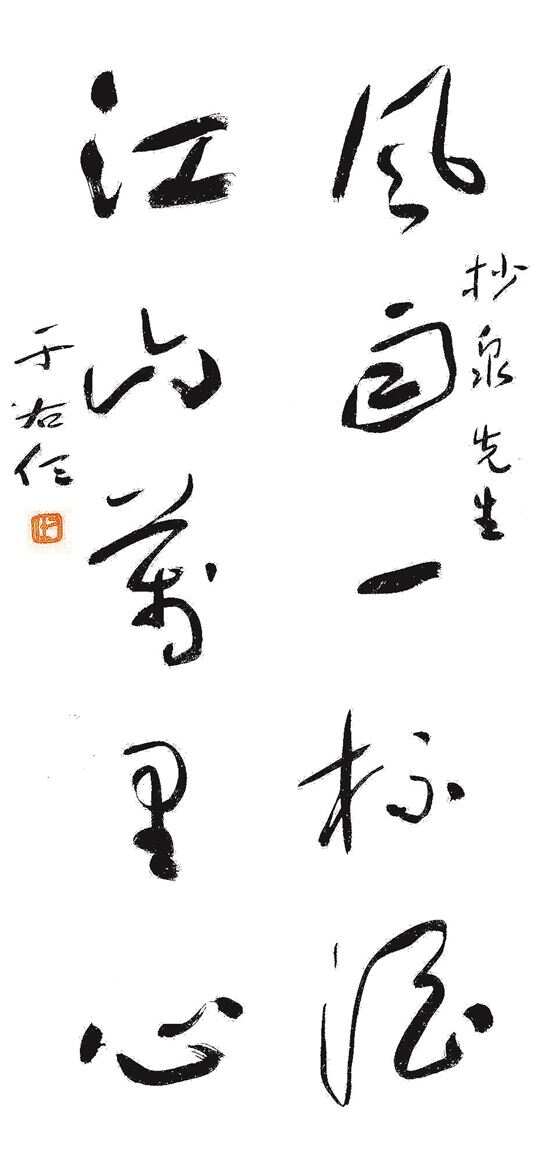 抄泉先生
風雨一杯酒
江山萬里心
于右任